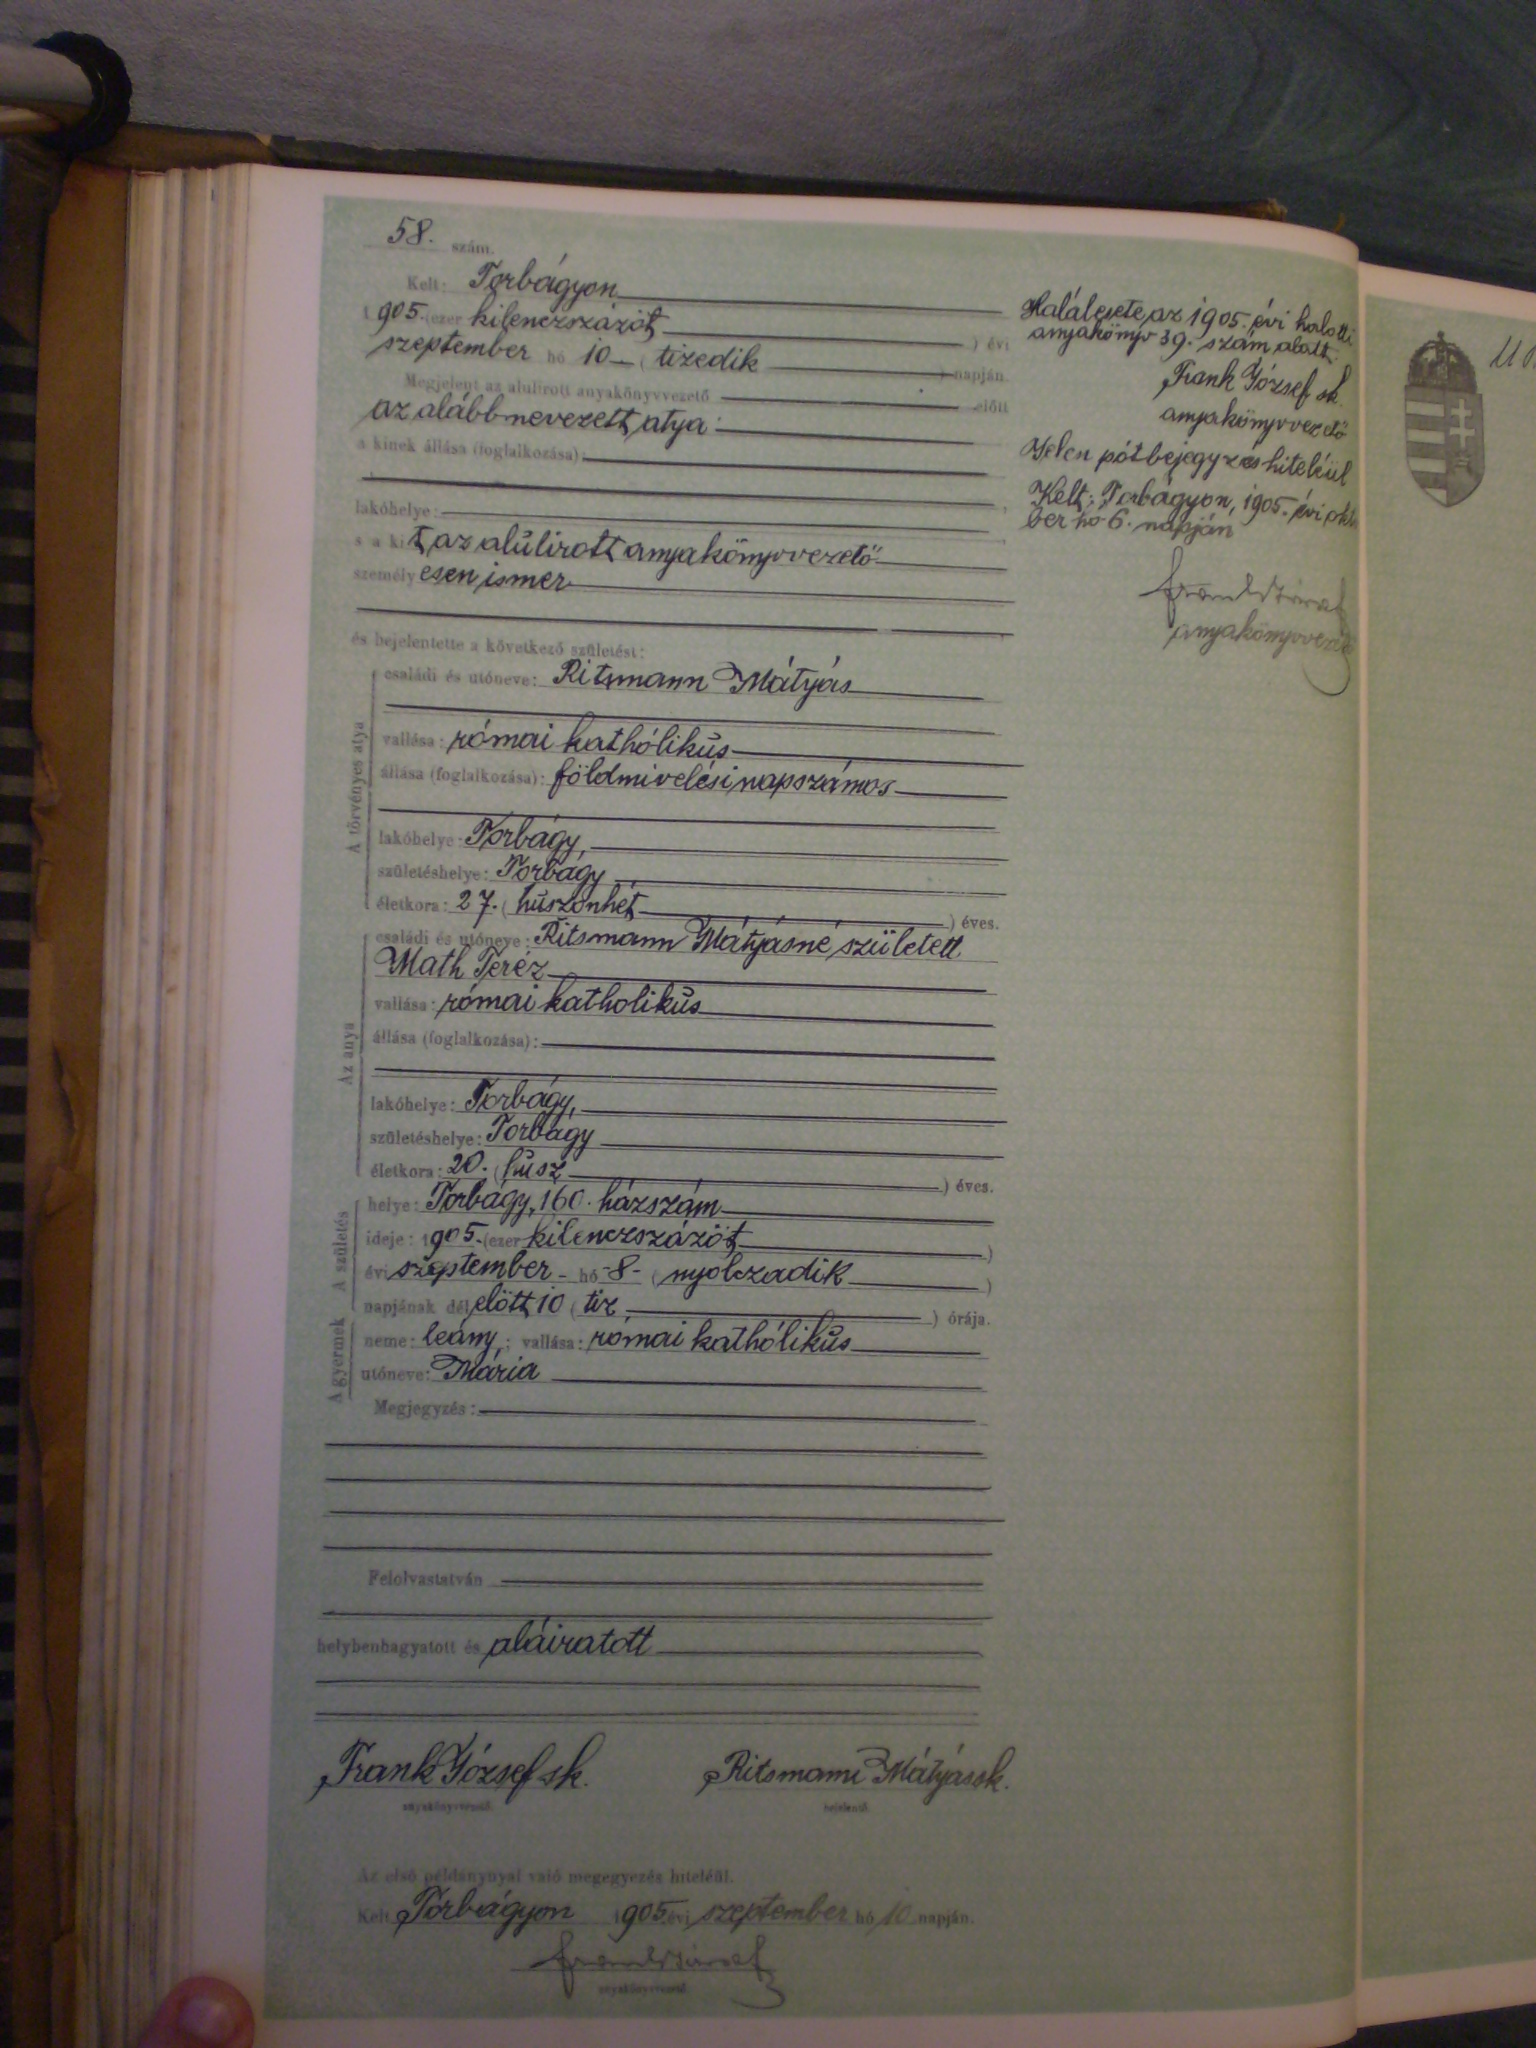 58. szám.
Kelt: Torbágyon
1905. (ezer kilenczszázöt) évi
szeptember hó 10 (tizedik) napján
Megjelent az alulirott anyakönyvvezető előtt
az alább nevezett atya:
a kinek állása (foglalkozása):
lakóhelye:
s a kit az alulirott anyakönyvvezető
személyesen ismer
és bejelentette a következő születést:
A törvényes atya
családi és utóneve: Ritsmann Mátyás
vallása: római kathólikus
állása (foglalkozása): földmivelési napszámos
lakóhelye: Torbágy,
születéshelye: Torbágy
életkora: 27. (huszonhét) éves.
Az anya
családi és utóneve: Ritsmann Mátyásné született
Math Teréz
vallása: római katholikus
állása (foglalkozása):
lakóhelye: Torbágy,
születéshelye: Torbágy
életkora: 20. (húsz) éves.
A születés
helye: Torbágy, 160. házszám
ideje: 1905. (ezer kilenczszázöt)
évi szeptember - hó -8- (nyolczadik)
napjának délelőtt 10 (tiz) órája.
A gyermek
neme: leány,; vallása: római kathólikus
utóneve: Mária
Megjegyzés:
Felolvastatván
helybenhagyatott és aláiratott
Frank József sk. Ritsmann Mátyás sk.
anyakönyvvezető. bejelentő.
Az első példánynyal való megegyezés hiteléül.
Kelt Torbágyon 1905 évi szeptember hó 10 napján.
Frank József
anyakönyvvezető.
Halálesete az 1905. évi halotti
anyakönyv 39. szám alatt.
Frank József sk.
anyakönyvvezető
Jelen pótbejegyzés hiteléül
Kelt: Torbágyon, 1905. évi októ
ber hó 6. napján
Frank József
anyakönyvvezető